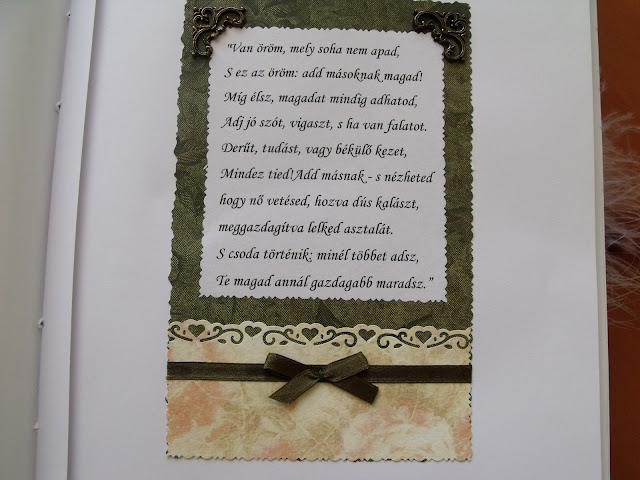 "Van öröm, mely soha nem apad,
S ez az öröm: add másoknak magad!
Míg élsz, magadat mindig adhatod,
Adj jó szót, vigaszt, s ha van falatot.
Derűt, tudást, vagy békülő kezet,
Mindez tied!Add másnak - s nézheted
hogy nő vetésed, hozva dús kalászt,
meggazdagítva lelked asztalát.
S csoda történik: minél többet adsz,
Te magad annál gazdagabb maradsz."